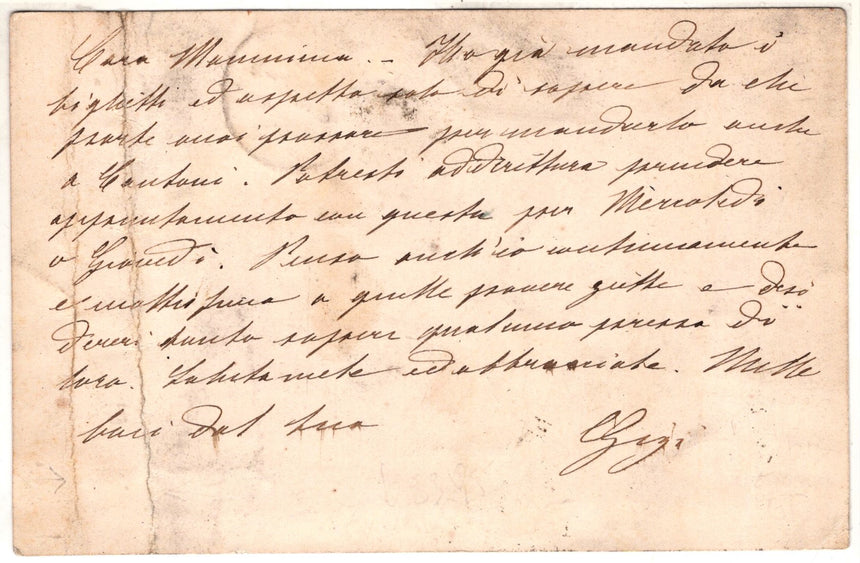 Cara Mammina. - Ho già mandato i
biglietti ed aspetto solo di sapere da che
parte vuoi passare per mandarlo anche
a Cantoni. Potresti addirittura prendere
appuntamento con questa per Mercoledì
o Giovedì. Penso anch'io continuamente
e a quelle povere gitte e desi
dererei tanto sapere qualcuno presso di
loro. Salutamele ed abbracciale. Mille
baci dal tuo
Gigi